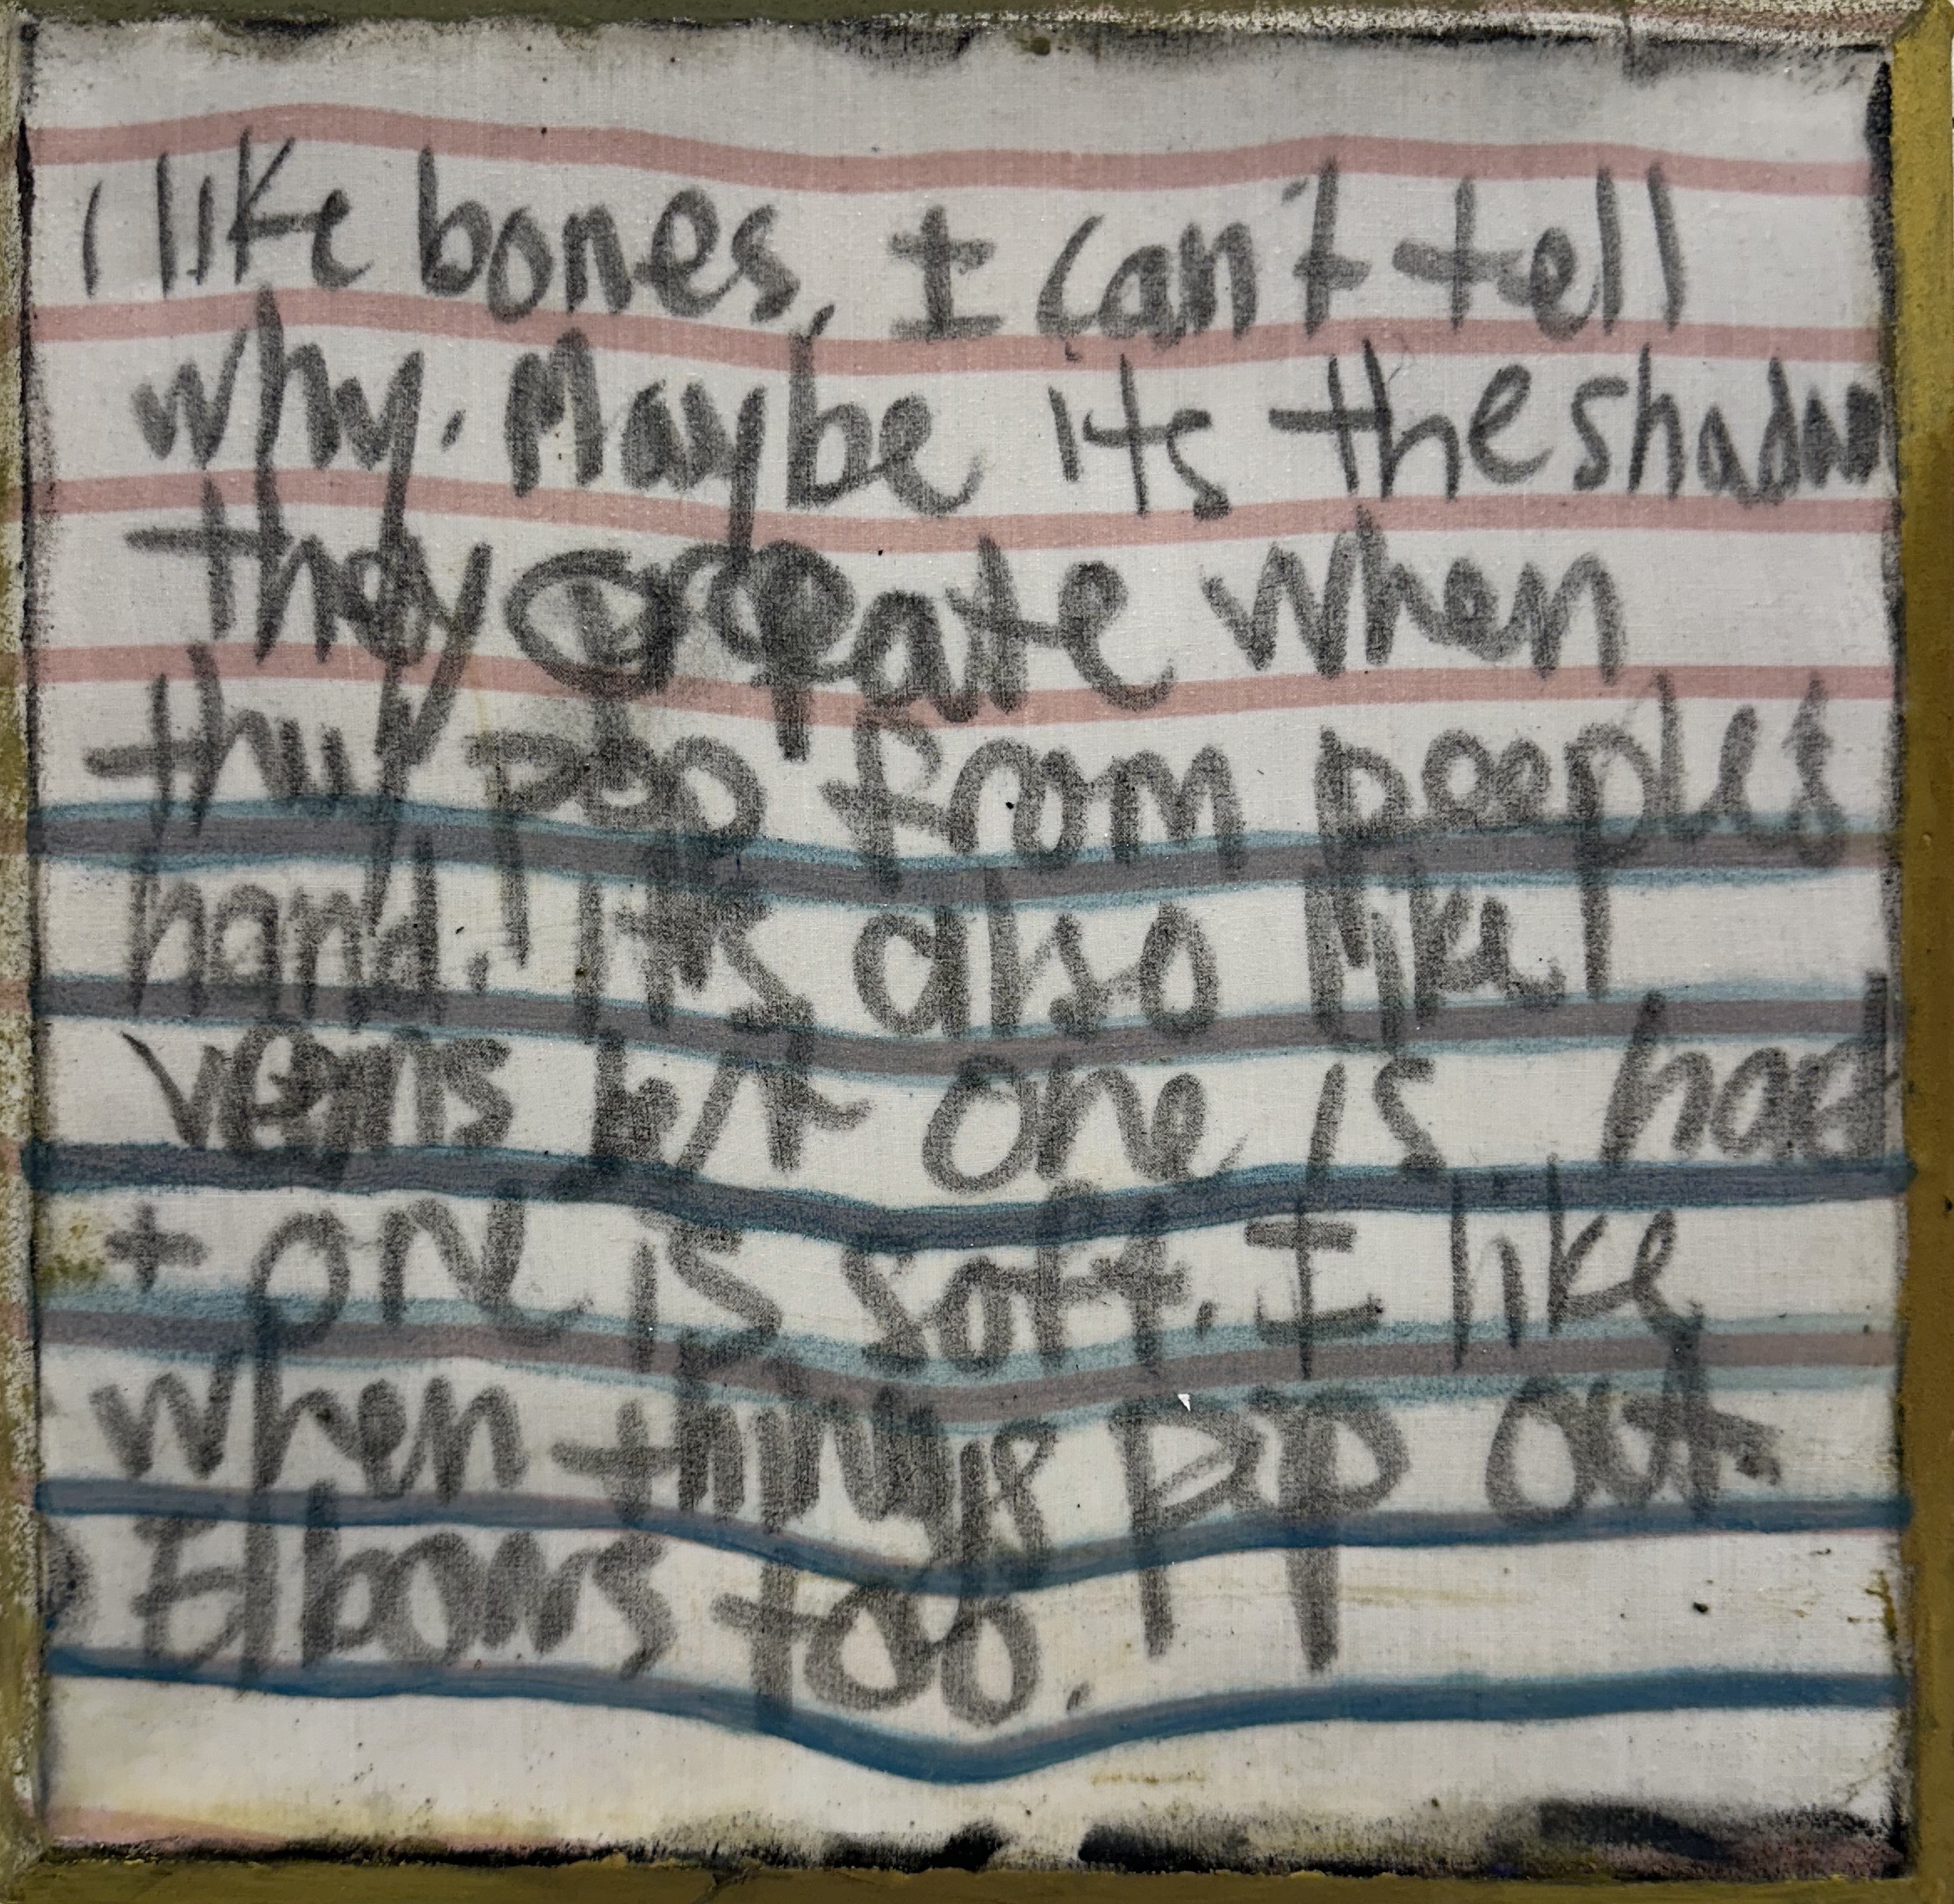 I like bones, I can't tell
why. Maybe its the shadow
they create when
they pop from poeples
hand. Its also like
veins but one is hard
+ one is soft. I like
when things pop out.
Elbows too.